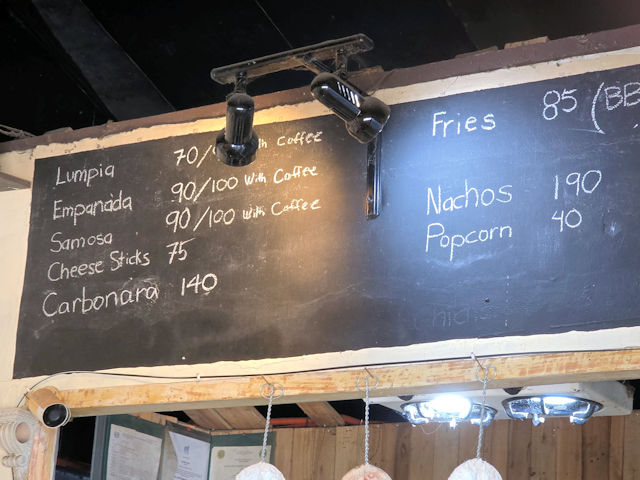 Lumpia 70/ With Coffee
Empanada 90/100 With Coffee
Samosa 90/100 With Coffee
Cheese Sticks 75
Carbonara 140
Fries 85 (BB
Nachos 190
Popcorn 40